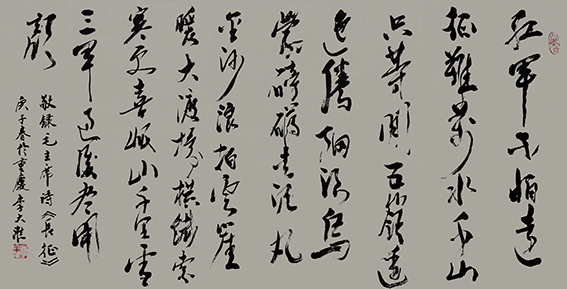 红军不怕远
征难万水千山
只等闲五岭逶
迤腾细浪乌
蒙磅礴走泥丸
金沙浪拍云崖
暖大渡桥横鐵索
寒更喜岷山千里雪
三军过后尽开
颜
敬録毛主席诗《长征》
庚子春於重慶李大